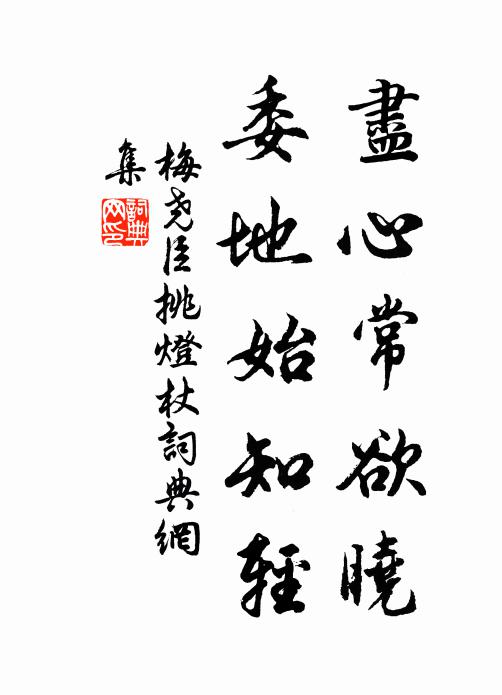 盡心常欲曉
委地始知輕
梅尧臣挑燈杖詞典網
集
詞典
网印